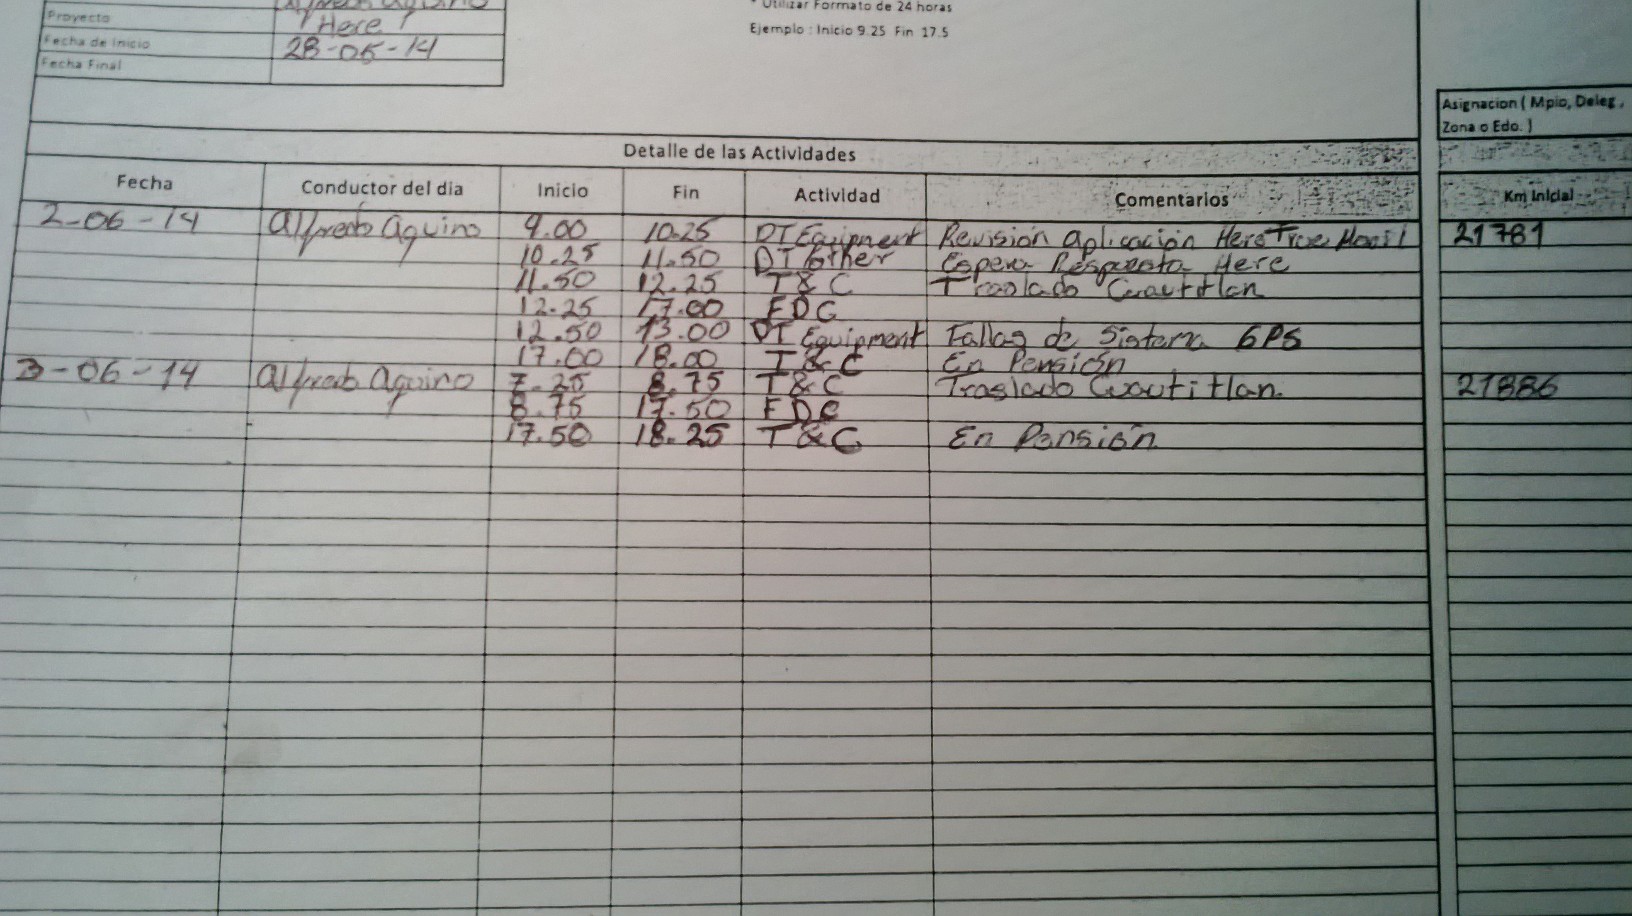 Alfredo Aquino
* Utilizar Formato de 24 horas
Proyecto Here
Ejemplo : Inicio 9.25 Fin 17.5
Fecha de Inicio 28-05-14
Fecha Final
Asignacion ( Mpio, Deleg ,
Zona o Edo. )
Detalle de las Actividades
Fecha Conductor del dia Inicio Fin Actividad Comentarios Km Inicial
2-06-14 Alfredo Aquino 9.00 10.25 DT Equipment Revisión Aplicación Here 21781
10.25 11.50 DT Other Espera Respuesta Here
11.50 12.25 T & C Traslado Cuautitlan
12.25 17.00 FDC
12.50 13.00 DT Equipment Fallas de Sistema GPS
17.00 18.00 T & C En Pensión
3-06-14 Alfredo Aquino 7.25 8.75 T & C Traslado Cuautitlan. 21886
8.75 17.50 FDC
17.50 18.25 T & C En Pensión